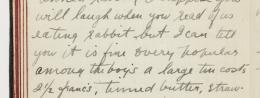 will laugh when you read of us
eating rabbit but I can tell
you it is fine & very popular
among the boys a large tin costs
2½ francs, tinned butter, straw-